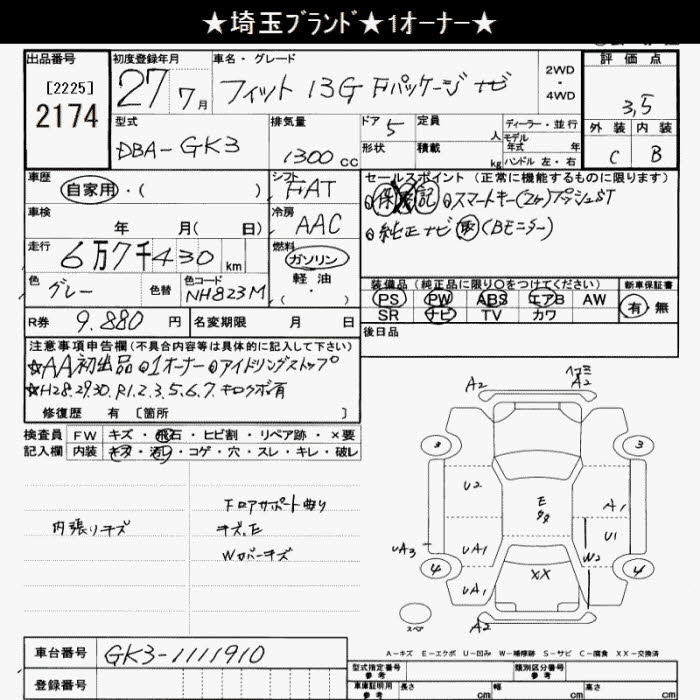 ★埼玉ブランド★1オーナー★
出品番号 [2225] 2174
初度登録年月 27 7月
車名・グレード フィット 13G Fパッケージ ナビ
2WD・4WD
評価点 3,5
外装 C 内装 B
型式 DBA-GK3
排気量 1300cc
ドア 5 定員 人
形状 積載 kg
ディーラー・並行
モデル年式 年
ハンドル 左・右
車歴 自家用・( )
シフト FAT
セールスポイント (正常に機能するものに限ります)
保 記 スマートキー(2ヶ) プッシュST
純正ナビ 取 (Bモニター)
車検 年 月( 日)
冷房 AAC
走行 6万7千430km
燃料 ガソリン・軽油・( )
色 グレー 色替 色コード NH823M
装備品 (純正品に限り〇をつけてください) 新車保証書
PS PW ABS エアB AW 有・無
SR ナビ TV カワ
R券 9.880円 名変期限 月 日
後日品
注意事項申告欄(不具合内容等は具体的に記入して下さい)
☆AA初出品 1オーナー アイドリングストップ
☆H28.29.30.R1.2.3.5.6.7.キロクボ有
修復歴 有 [箇所 ]
検査員記入欄 FW キズ・飛石・ヒビ割・リペア跡・×要
内装 キズ・汚レ・コゲ・穴・スレ・キレ・破レ
内張りキズ
Fロアサポート曲り
キズ.E
Wカバーキズ
A2 ヘコミ A2
3 3
U2 E A1
UA3 UA1 U1 W2
4 XX 4
UA1
スペア A2
A-キズ E-エクボ U-凹み W-補修跡 S-サビ C-腐食 XX-交換済
車台番号 GK3-1111910
登録番号
型式指定番号 参考 類別区分番号 参考
車庫証明用 参考 長さ cm 幅 cm 高さ cm